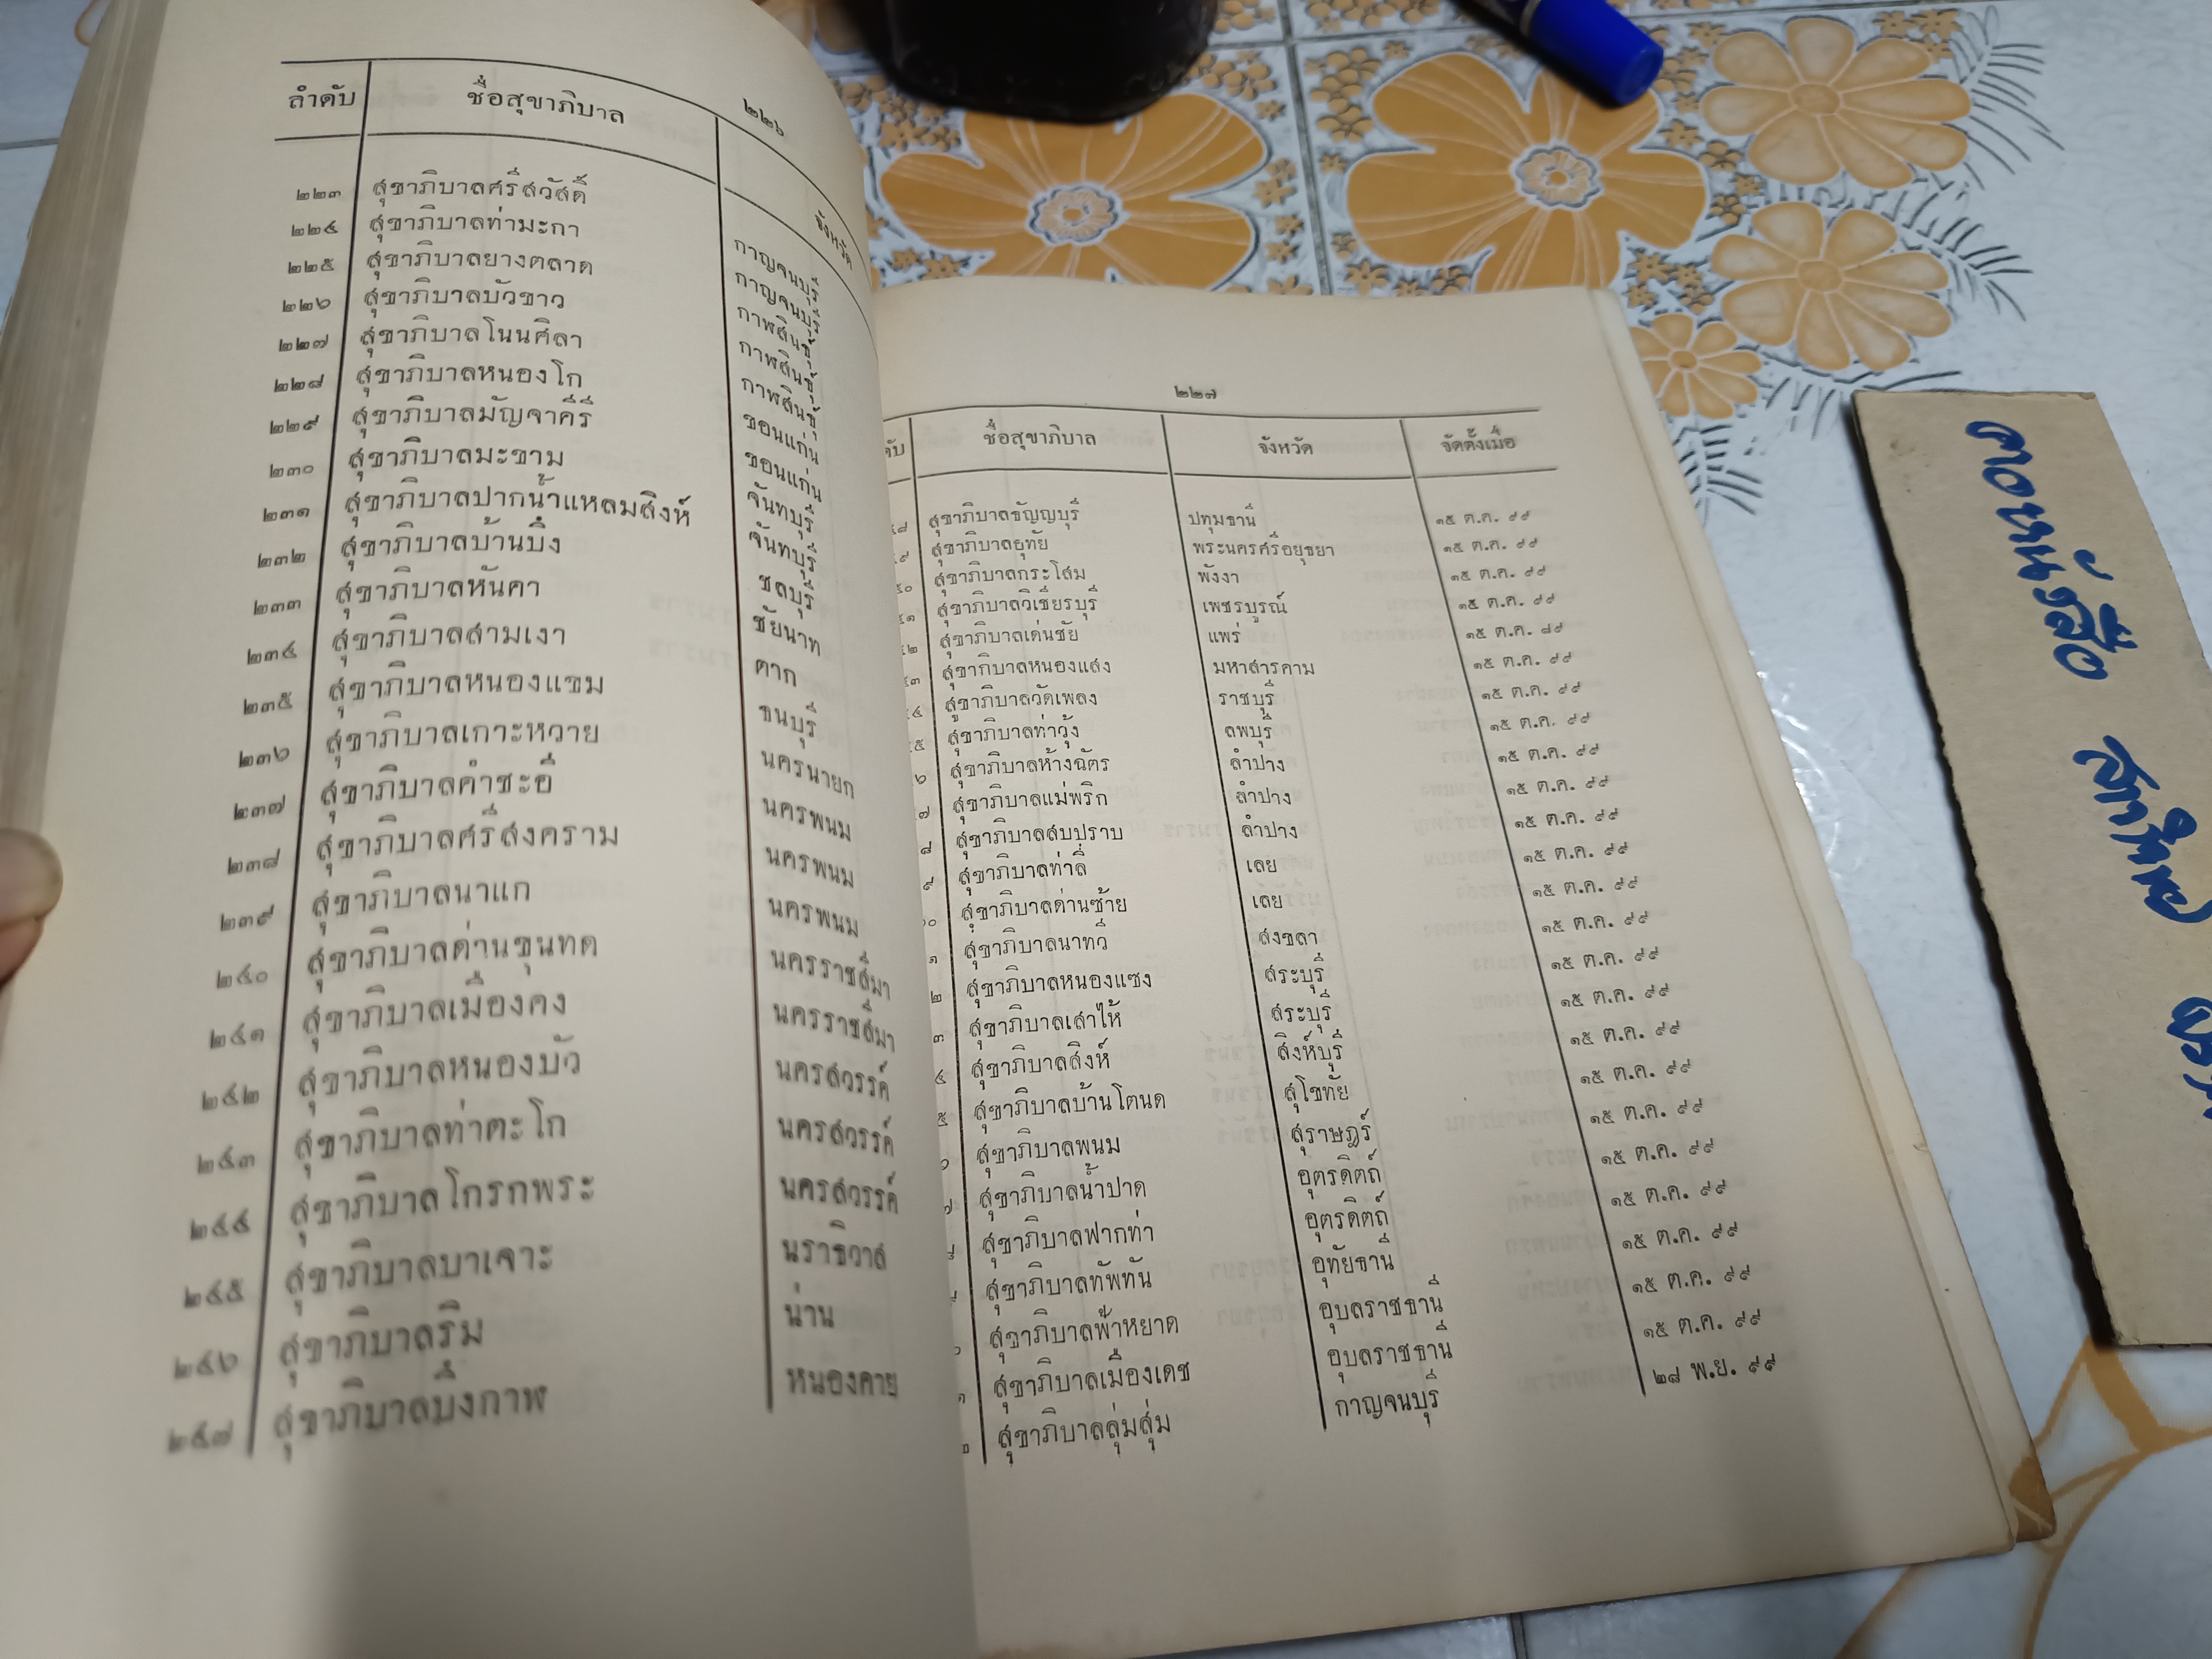 ๒๒๖
ลำดับ ชื่อสุขาภิบาล จังหวัด
๒๒๓ สุขาภิบาลศรีสวัสดิ์ กาญจนบุรี
๒๒๔ สุขาภิบาลท่ามะกา กาญจนบุรี
๒๒๕ สุขาภิบาลยางตลาด กาฬสินธุ์
๒๒๖ สุขาภิบาลบัวขาว กาฬสินธุ์
๒๒๗ สุขาภิบาลโนนศิลา กาฬสินธุ์
๒๒๘ สุขาภิบาลหนองโก ขอนแก่น
๒๒๙ สุขาภิบาลมัญจาคีรี ขอนแก่น
๒๓๐ สุขาภิบาลมะขาม จันทบุรี
๒๓๑ สุขาภิบาลปากน้ำแหลมสิงห์ จันทบุรี
๒๓๒ สุขาภิบาลบ้านบึง ชลบุรี
๒๓๓ สุขาภิบาลหันคา ชัยนาท
๒๓๔ สุขาภิบาลสามเงา ตาก
๒๓๕ สุขาภิบาลหนองแขม ธนบุรี
๒๓๖ สุขาภิบาลเกาะหวาย นครนายก
๒๓๗ สุขาภิบาลคำชะอี นครพนม
๒๓๘ สุขาภิบาลศรีสงคราม นครพนม
๒๓๙ สุขาภิบาลนาแก นครพนม
๒๔๐ สุขาภิบาลด่านขุนทด นครราชสีมา
๒๔๑ สุขาภิบาลเมืองคง นครราชสีมา
๒๔๒ สุขาภิบาลหนองบัว นครสวรรค์
๒๔๓ สุขาภิบาลท่าตะโก นครสวรรค์
๒๔๔ สุขาภิบาลโกรกพระ นครสวรรค์
๒๔๕ สุขาภิบาลบาเจาะ นราธิวาส
๒๔๖ สุขาภิบาลริม น่าน
๒๔๗ สุขาภิบาลบึงกาฬ หนองคาย
๒๒๗
ดับ ชื่อสุขาภิบาล จังหวัด จัดตั้งเมื่อ
๘ สุขาภิบาลธัญญบุรี ปทุมธานี ๑๕ ต.ค. ๙๙
๙ สุขาภิบาลอุทัย พระนครศรีอยุธยา ๑๕ ต.ค. ๙๙
๐ สุขาภิบาลกระโสม พังงา ๑๕ ต.ค. ๙๙
๑ สุขาภิบาลวิเชียรบุรี เพชรบูรณ์ ๑๕ ต.ค. ๙๙
๒ สุขาภิบาลเด่นชัย แพร่ ๑๕ ต.ค. ๘๙
๓ สุขาภิบาลหนองแสง มหาสารคาม ๑๕ ต.ค. ๙๙
๔ สุขาภิบาลวัดเพลง ราชบุรี ๑๕ ต.ค. ๙๙
๕ สุขาภิบาลท่าวุ้ง ลพบุรี ๑๕ ต.ค. ๙๙
๖ สุขาภิบาลห้างฉัตร ลำปาง ๑๕ ต.ค. ๙๙
๗ สุขาภิบาลแม่พริก ลำปาง ๑๕ ต.ค. ๙๙
๘ สุขาภิบาลสบปราบ ลำปาง ๑๕ ต.ค. ๙๙
๙ สุขาภิบาลท่าลี่ เลย ๑๕ ต.ค. ๙๙
๐ สุขาภิบาลด่านซ้าย เลย ๑๕ ต.ค. ๙๙
๑ สุขาภิบาลนาทวี สงขลา ๑๕ ต.ค. ๙๙
๒ สุขาภิบาลหนองแซง สระบุรี ๑๕ ต.ค. ๙๙
๓ สุขาภิบาลเสาไห้ สระบุรี ๑๕ ต.ค. ๙๙
๔ สุขาภิบาลสิงห์ สิงห์บุรี ๑๕ ต.ค. ๙๙
๕ สุขาภิบาลบ้านโตนด สุโขทัย ๑๕ ต.ค. ๙๙
สุขาภิบาลพนม สุราษฎร์ ๑๕ ต.ค. ๙๙
๗ สุขาภิบาลน้ำปาด อุตรดิตถ์ ๑๕ ต.ค. ๙๙
สุขาภิบาลฟากท่า อุตรดิตถ์ ๑๕ ต.ค. ๙๙
สุขาภิบาลทัพทัน อุทัยธานี ๑๕ ต.ค. ๙๙
สุขาภิบาลฟ้าหยาด อุบลราชธานี ๑๕ ต.ค. ๙๙
๑ สุขาภิบาลเมืองเดช อุบลราชธานี ๑๕ ต.ค. ๙๙
สุขาภิบาลลุ่มสุ่ม กาญจนบุรี ๒๘ พ.ย. ๙๙